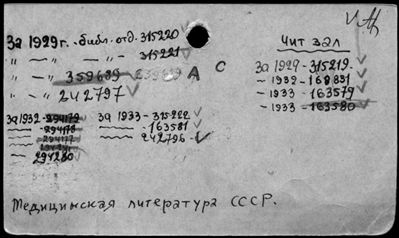 За 1929 г. - библ. отд. 315220
" " — " — 315221
" — " 359689 239889 А С
" " 242797
За 1932 - 294179
294178
294177
294180
За 1933 - 315222
163581
242796
Чит зал
За 1929 - 315219
~ 1932 - 168831
~ 1933 - 163579
~ 1933 - 163580
Медицинская литература СССР.